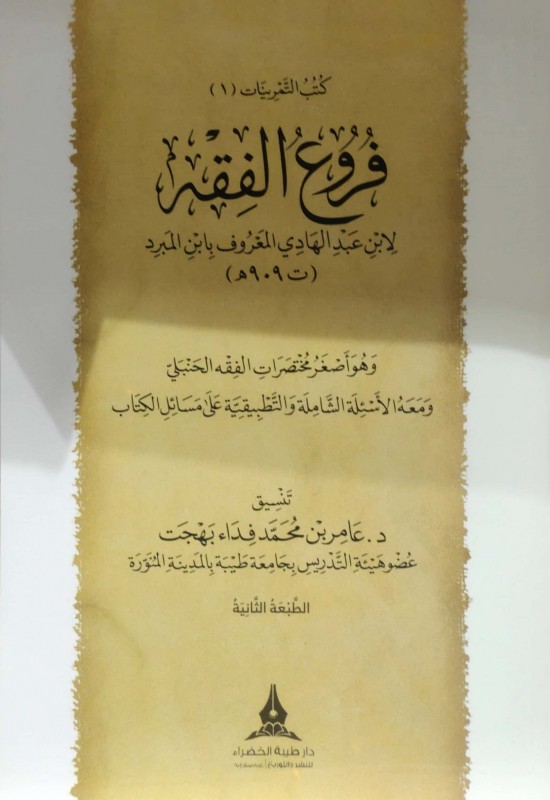 كُتُبُ التَّمْرِينَات (١)
فُرُوعُ الفِقْهِ
لِابْنِ عَبْدِ الهَادِي المَعْرُوفِ بِابْنِ المَبْرِدِ
(ت ٩٠٩هـ)
وَهُوَ أَصْغَرُ مُخْتَصَرَاتِ الفِقْهِ الحَنْبَلِيّ
وَمَعَهُ الأَسْئِلَة الشَّامِلَة وَالتَّطْبِيقِيَّة عَلَى مَسَائِلِ الكِتَاب
تَنْسِيق
د. عَامِر بْن مُحَمَّد فِدَاء بَهْجَت
عُضْو هَيْئَةِ التَّدْرِيسِ بِجَامِعَة طَيْبَة بِالمَدِينَةِ المُنَوَّرَة
الطَّبْعَةُ الثَّانِيَةُ
دار طيبة الخضراء
للنشر والتوزيع